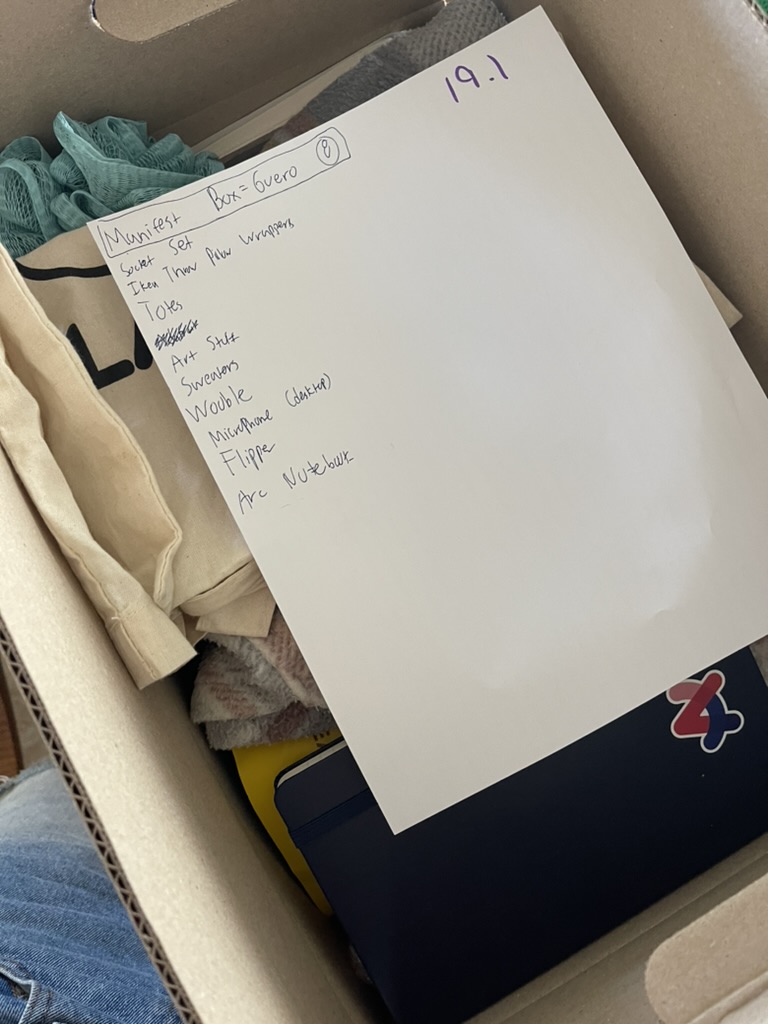 19.1
Manifest Box = Guero 8
Socket Set
Ikea Throw Pillow Wrappers
Totes
Art Stuff
Sweaters
Wooble
Microphone (desktop)
Flipper
Arc Notebook
LA